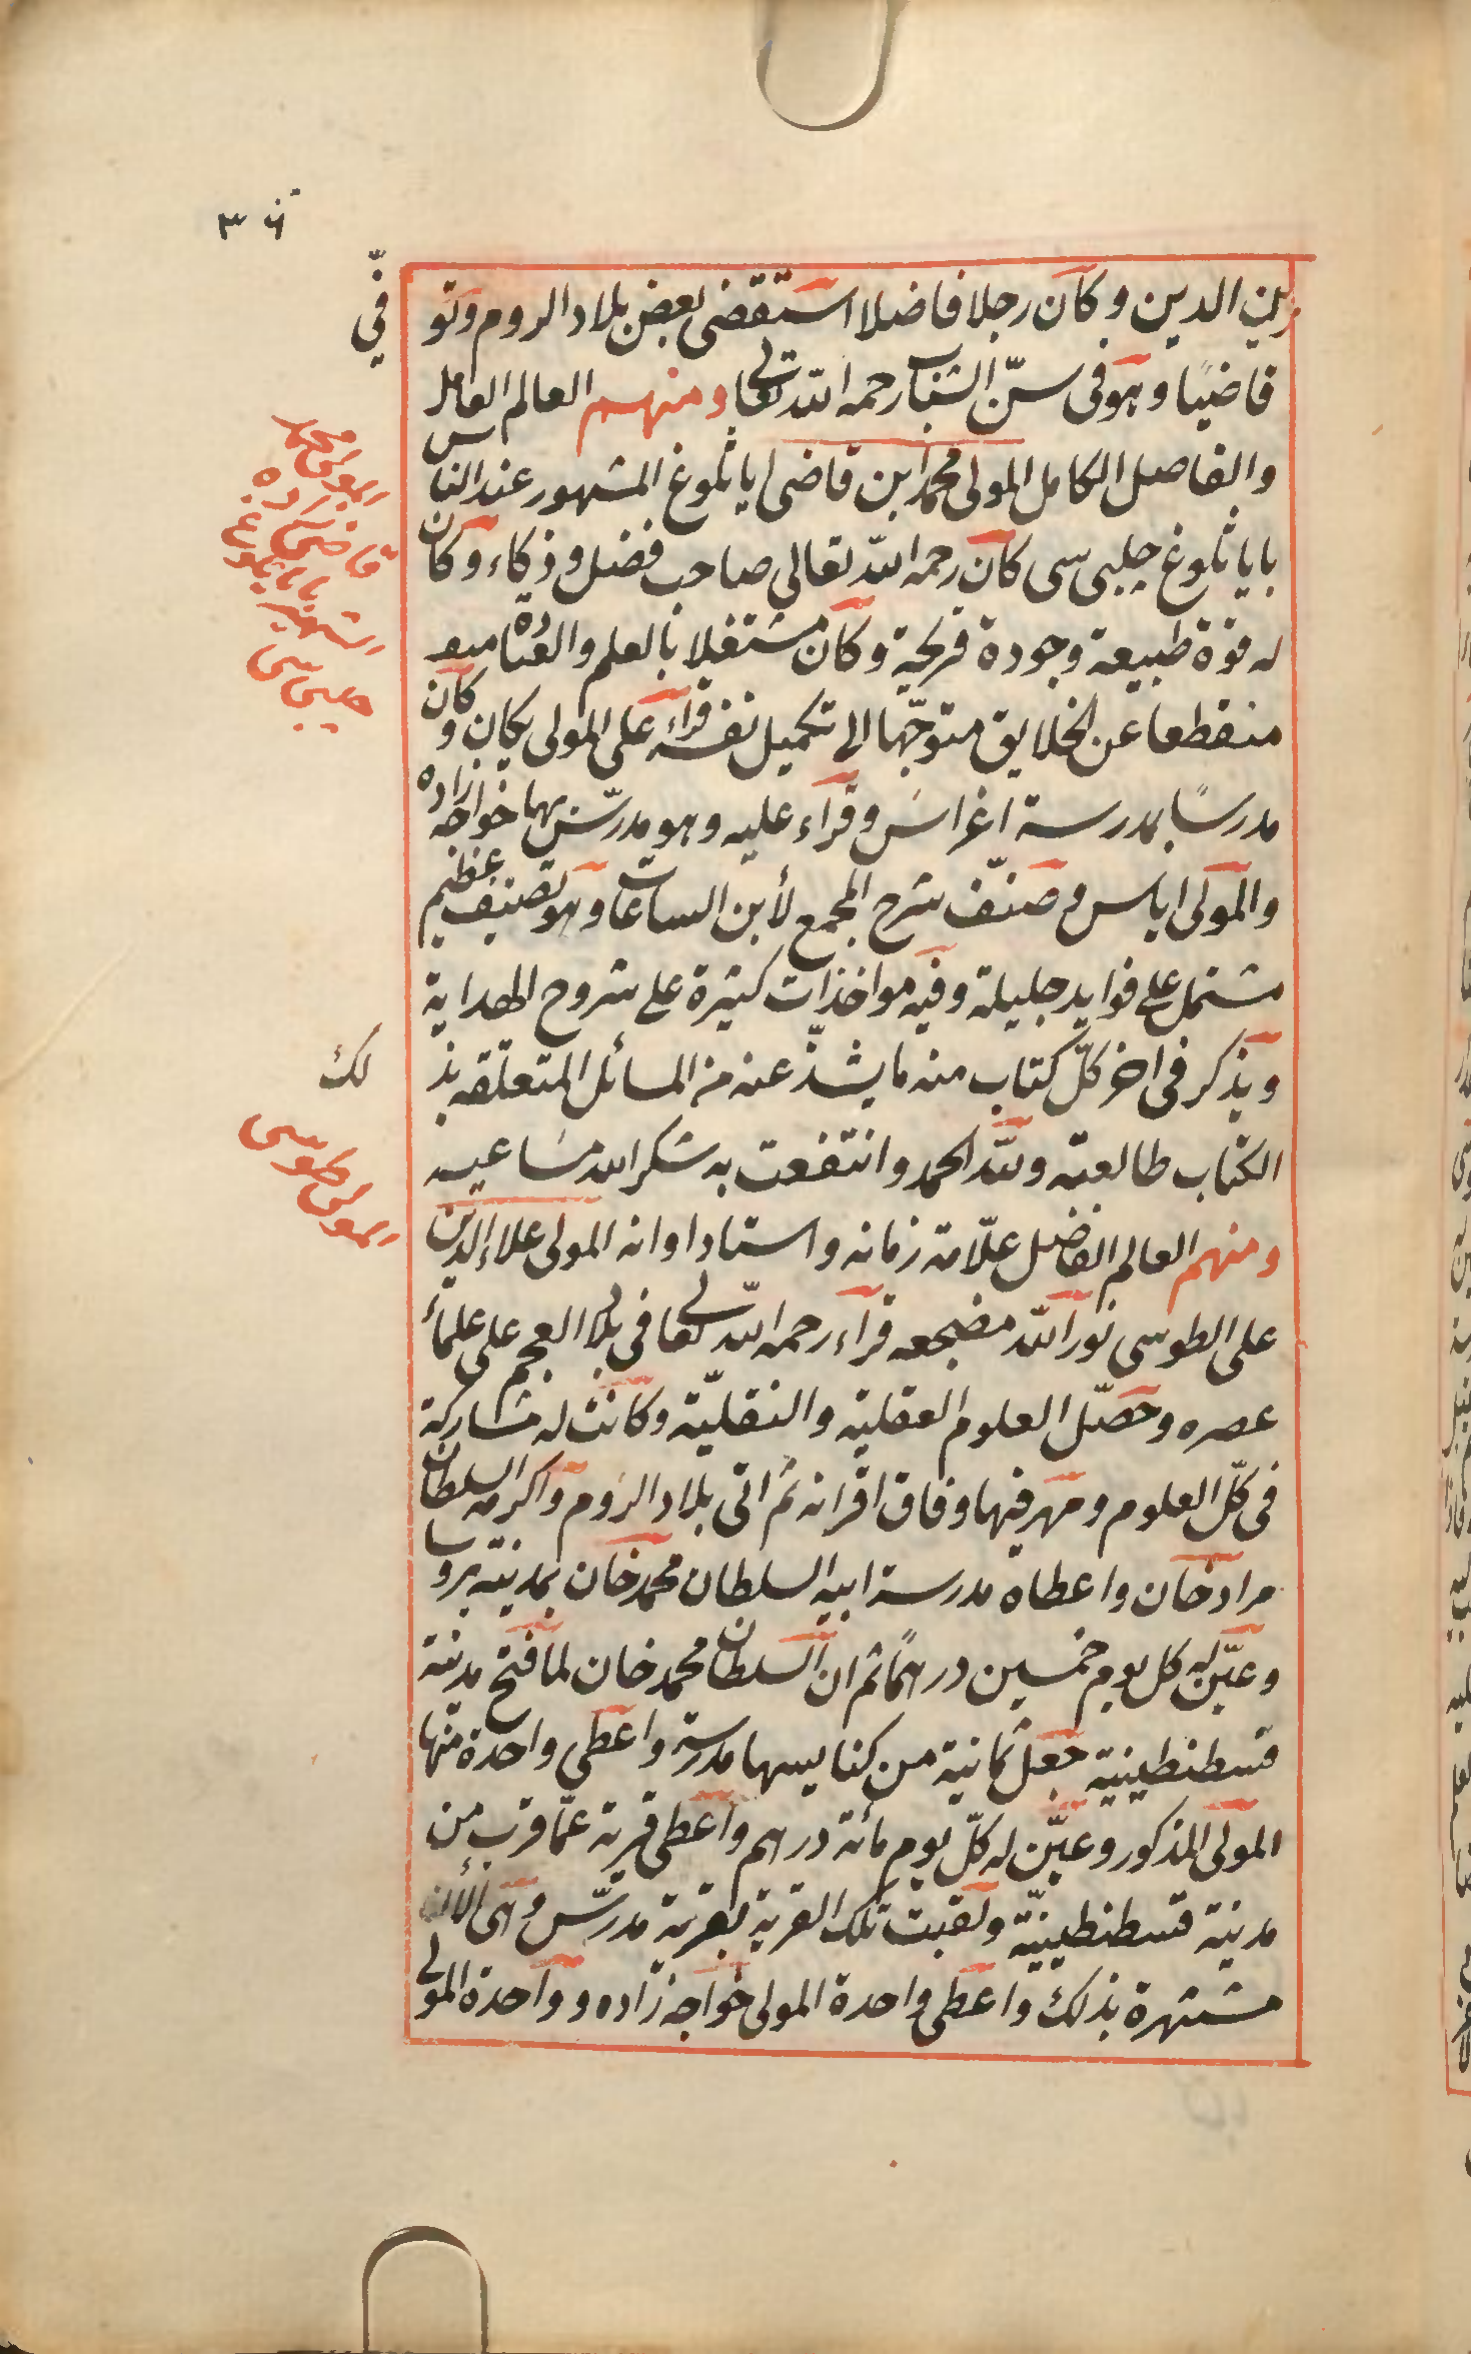 ٣٦
زين الدين وكان رجلا فاضلا استقضى بعض بلاد الروم وتو
في
قاضيًا وهو فى سنّ الشباب رحمه الله تعالى ومنهم العالم العامل
والفاضل الكامل المولى محمد ابن قاضى اياثلوغ المشهور عند الناس
باياثلوغ جلبى سى كان رحمه الله تعالى صاحب فضل وذكاء وكان
له قوة طبيعة وجودة قريحة وكان مشتغلا بالعلم والعبادة
منقطعا عن الخلايق متوجّها الى تكميل نفسه قرآء على المولى يكان وكان
مدرسًا بمدرسة اغراس وقرآء عليه وهو مدرّس بها خواجه زاده
والمولى اياس وصنّف شرح المجمع لأبن الساعات وهو تصنيف عظيم
مشتمل على فوايد جليلة وفيه مواخذات كثيرة على شروح الهداية
ويذكر فى اخر كلّ كتاب منه ما يشذّ عنه من المسائل المتعلقه بذ
لك
الكتاب طالعته ولله الحمد وانتفعت به شكر الله مساعيه
ومنهم العالم الفاضل علّامة زمانه واستاد اوانه المولى علاء الدين
على الطوسى نور الله مضجعه قرآء رحمه الله تعالى فى بلاد العجم على علمآء
عصره وحصّل العلوم العقلية والنقليّة وكانت له مشاركة
فى كلّ العلوم ومهر فيها وفاق اقرانه ثم اتى بلاد الروم واكرمه السلطان
مراد خان واعطاه مدرسة ابيه السلطان محمد خان بمدينة بروسا
وعيّن له كل يوم خمسين درهمًا ثم ان السلطان محمد خان لما فتح مدينة
قسطنطينية جعل ثمانية من كنايسها مدرسة واعطى واحدة منها
المولى المذكور وعيّن له كلّ يوم مائة درهم واعطى قرية عمّا قرب من
مدينة قسطنطينيّة ولقبت تلك القرية بقرية مدرّس وهى الأن
مشتهرة بذلك واعطى واحدة المولى خواجه زاده وواحدة المولى
المولى محمد
قاضى زاده
باياثلوغ
الشهير
جلبى سى
المولى طوسى